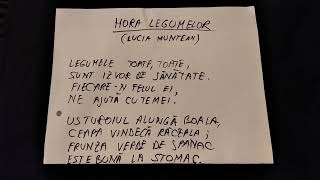 HORA LEGUMELOR
(LUCIA MUNTEAN)
LEGUMELE TOATE, TOATE,
SUNT IZVOR DE SĂNĂTATE.
FIECARE-N FELUL EI,
NE AJUTĂ CU TEMEI.
USTUROIUL ALUNGĂ BOALA,
CEAPA VINDECĂ RĂCEALA;
FRUNZA VERDE DE SPANAC
ESTE BUNĂ LA STOMAC.